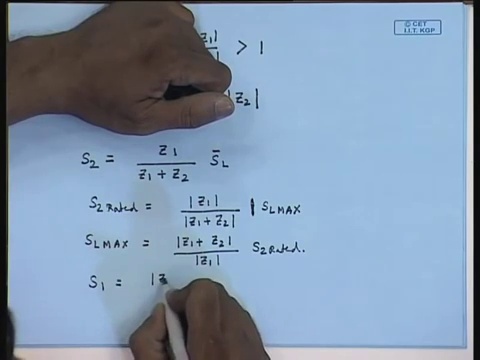 © CET
I.I.T. KGP
z1| > 1
|z2|
S2 = z1 / (z1 + z2) S̄L
S2 Rated = |z1| / |z1 + z2| | SL MAX
SL MAX = |z1 + z2| / |z1| S2 Rated.
S1 = |z